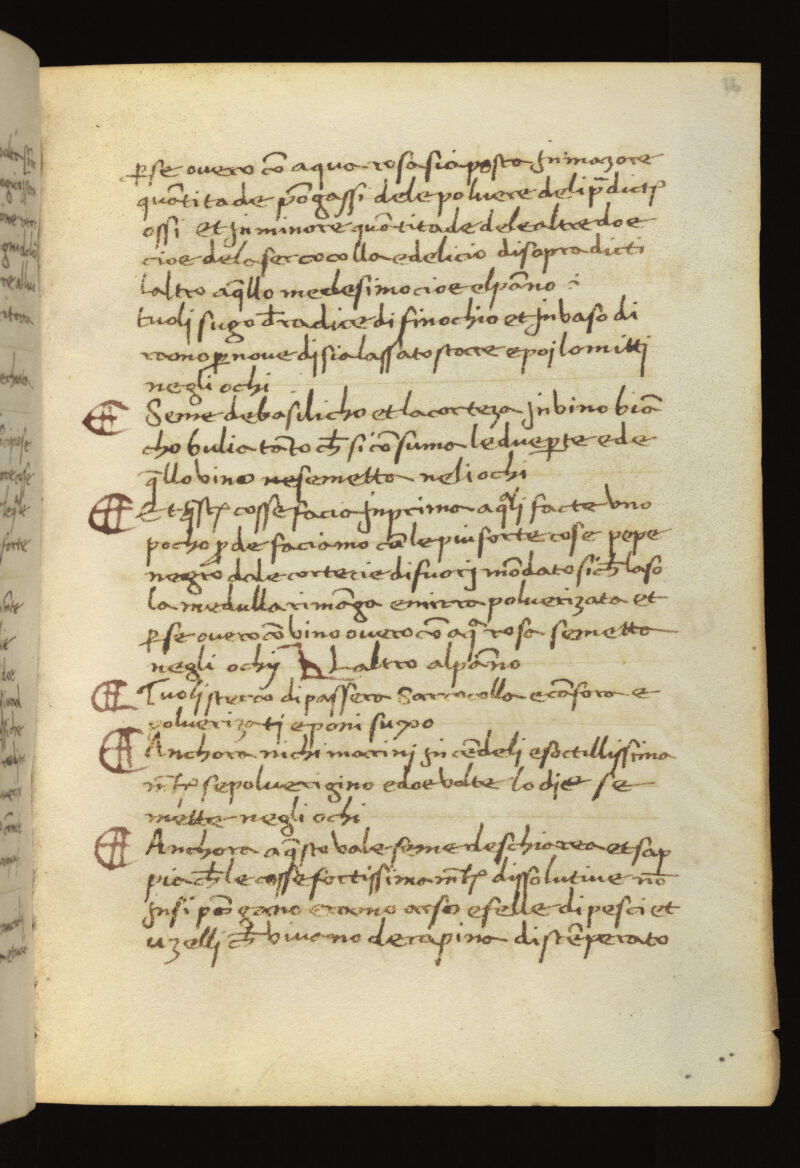 ꝑ se overo cō aqua rosa sia posta in mazore
quātitade pōgassi dele polvere deli p̄dicti
ossi et in minore quātitade dele altre doe
cioe dela sercocolla e delicio di sopra dicti
laltro aq̄llo medesimo cioe el pāno :
tuoli sugo d̄ radice di finochio et in vaso di
ramo ꝑ nove di sia lassato stare e poi lo mitti
negli ochi
Seme de basilicho et la corteza in vino biā
cho bulia tāto ch̄ si cōsuma le due ꝑte e de
q̄llo vino ne se metta neli ochi
Et q̄ste cosse facia in prima a q̄li facte uno
pocho ꝑde faciamo cō le piu forte cose pepe
negro dale cortecie di fuori mōdato sich̄ la so
la medulla rimāga e mirra polverizata et
ꝑ se overo cō vino overo cō aq̄ rosa se metta
negli ochij Laltro al pāno
Tuoli sterco di passera sarrocolla e cāfora e
polverizati e poni su xo
Anchora nichi marini in cēdeli e soctillissima
mēte se polverigino e doe volte lo die se
mette negli ochi
Anchora a q̄sto vale seme de schiarea et sap
pia ch̄ le cosse fortissimamēte dissolutive nō
in si pōgano eramo arso e felle di pesci et
uzelli ch̄ vivano de rapina distēperato